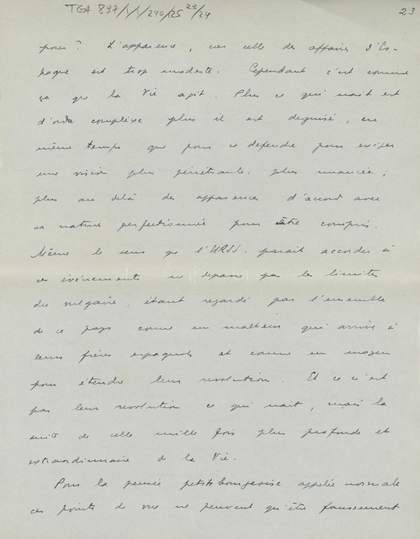 TGA 897/1/1/240/25 20/24
23
poser? L'apparence, vers celle des affaires d'Es-
pagne est trop modeste. Cependant c'est comme
ça que la Vie agit. Plus ce qui nait est
d'ordre complexe plus il est deguisé, en
même temps que pour se defendre pour exiger
une vision plus pénétrante, plus nuancée,
plus au délà des apparences d'accord avec
sa nature perfectionnée pour être compris.
Même le sens que l'URSS. parait accorder à
ces événements ne depasse pas les limites
du vulgaire, étant regardé par l'ensemble
de ce pays comme un malheur qui arrive à
leurs frères espagnols et comme un moyen
pour étendre leur revolution. Et ce n'est
pas leur revolution ce qui nait, mais la
suite de celle mille fois plus profonde et
extraordinaire de la Vie.
Pour la pensée petite bourgeoise appelée normale
ces points de vue ne peuvent qu'être faussement